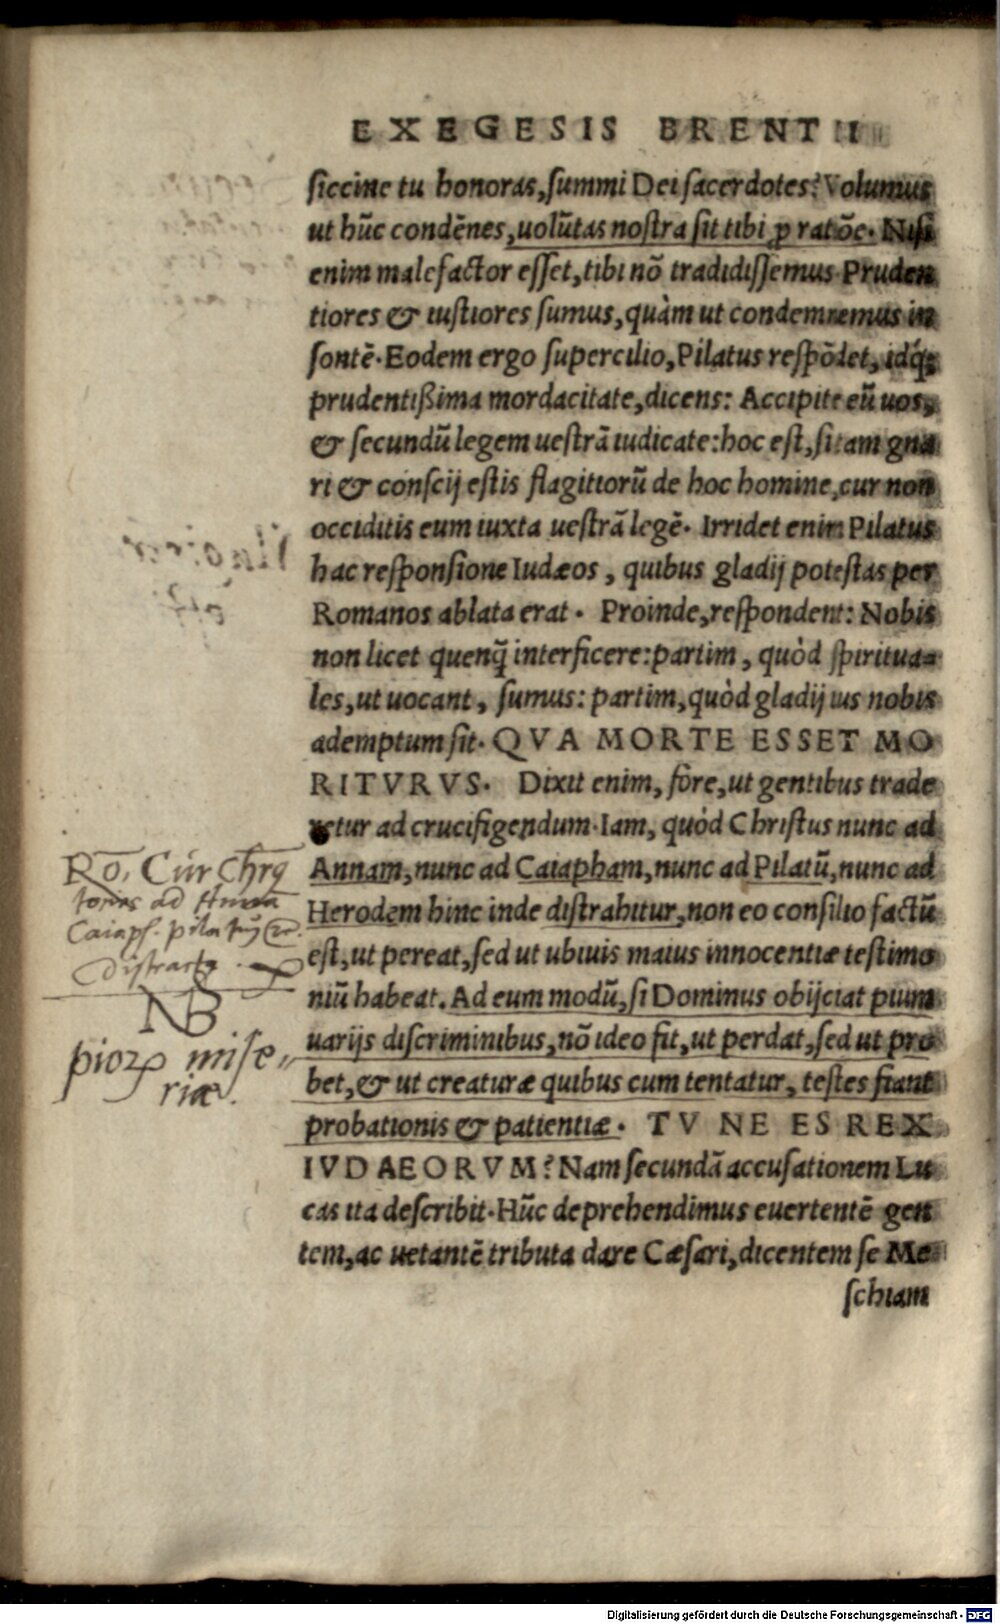 EXEGESIS BRENTII
siccine tu honoras, summi Dei sacerdotes? Volumus
ut hūc condēnes, uolūtas nostra sit tibi ꝓ ratōe. Nisi
enim malefactor esset, tibi nō tradidissemus. Pruden
tiores & iustiores sumus, quàm ut condemnemus in
sontē. Eodem ergo supercilio, Pilatus respōdet, idq́;
prudentißima mordacitate, dicens: Accipite eū uos,
& secundū legem uestrā iudicate: hoc est, si tam gna
ri & conscij estis flagitiorū de hoc homine, cur non
occiditis eum iuxta uestrā legē. Irridet enim Pilatus
hac responsione Iudæos, quibus gladij potestas per
Romanos ablata erat. Proinde, respondent: Nobis
non licet quenq̃ interficere: partim, quòd spiritua-
les, ut uocant, sumus: partim, quòd gladij ius nobis
ademptum sit. QVA MORTE ESSET MO
RITVRVS. Dixit enim, fore, ut gentibus trade
retur ad crucifigendum. Iam, quòd Christus nunc ad
Annam, nunc ad Caiapham, nunc ad Pilatū, nunc ad
Herodem hinc inde distrahitur, non eo consilio factū
est, ut pereat, sed ut ubiuis maius innocentiæ testimo
niū habeat. Ad eum modū, si Dominus obijciat pium
uarijs discriminibus, nō ideo fit, ut perdat, sed ut pro
bet, & ut creaturæ quibus cum tentatur, testes fiant
probationis & patientiæ. TV NE ES REX
IVDAEORVM? Nam secundā accusationem Lu
cas ita describit. Hūc deprehendimus euertentē gen
tem, ac uetantē tributa dare Cæsari, dicentem se Me-
schiam
Rō. Cur Chrꝯ
toties ad Annā
Caiaph. Pilatum
NB
pioꝝ mise-
riæ.
Digitalisierung gefördert durch die Deutsche Forschungsgemeinschaft - DFG